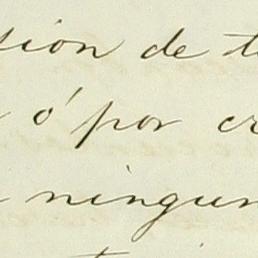 sion de t
ó por cr
ningun